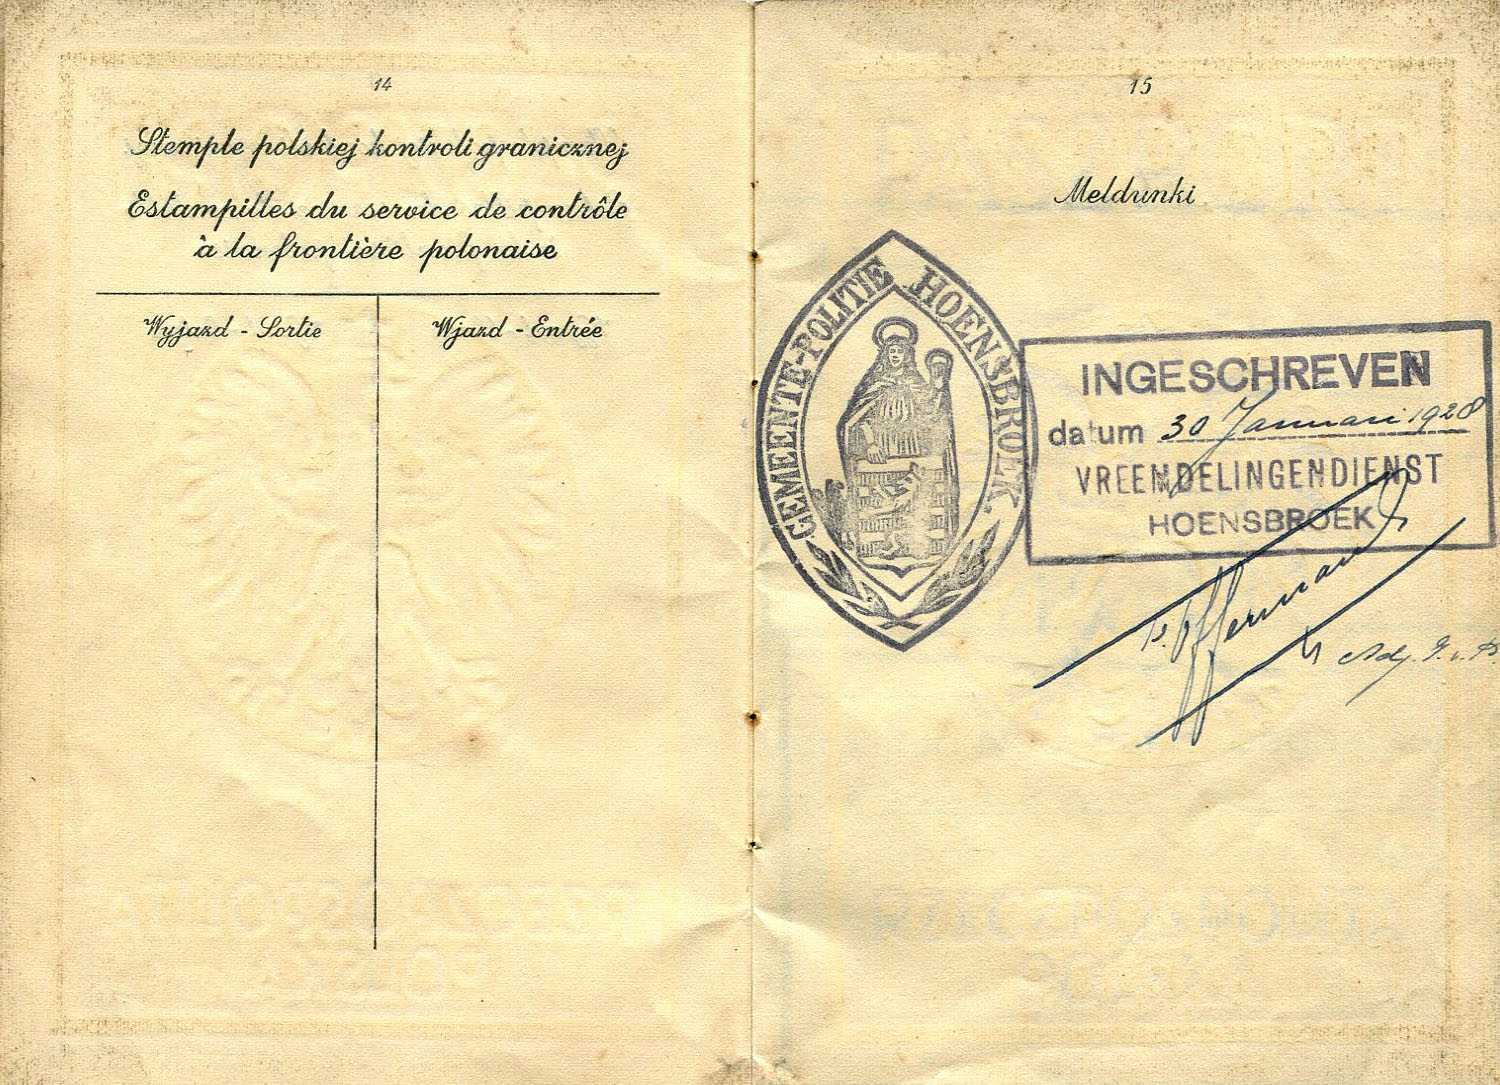 14
Stemple polskiej kontroli granicznej
Estampilles du service de contrôle
à la frontière polonaise
Wyjazd - Sortie
Wjazd - Entrée
15
Meldunki
GEMEENTE-POLITIE HOENSBROEK.
INGESCHREVEN
datum 30 Januari 1928
VREEMDELINGENDIENST
HOENSBROEK
Adj.